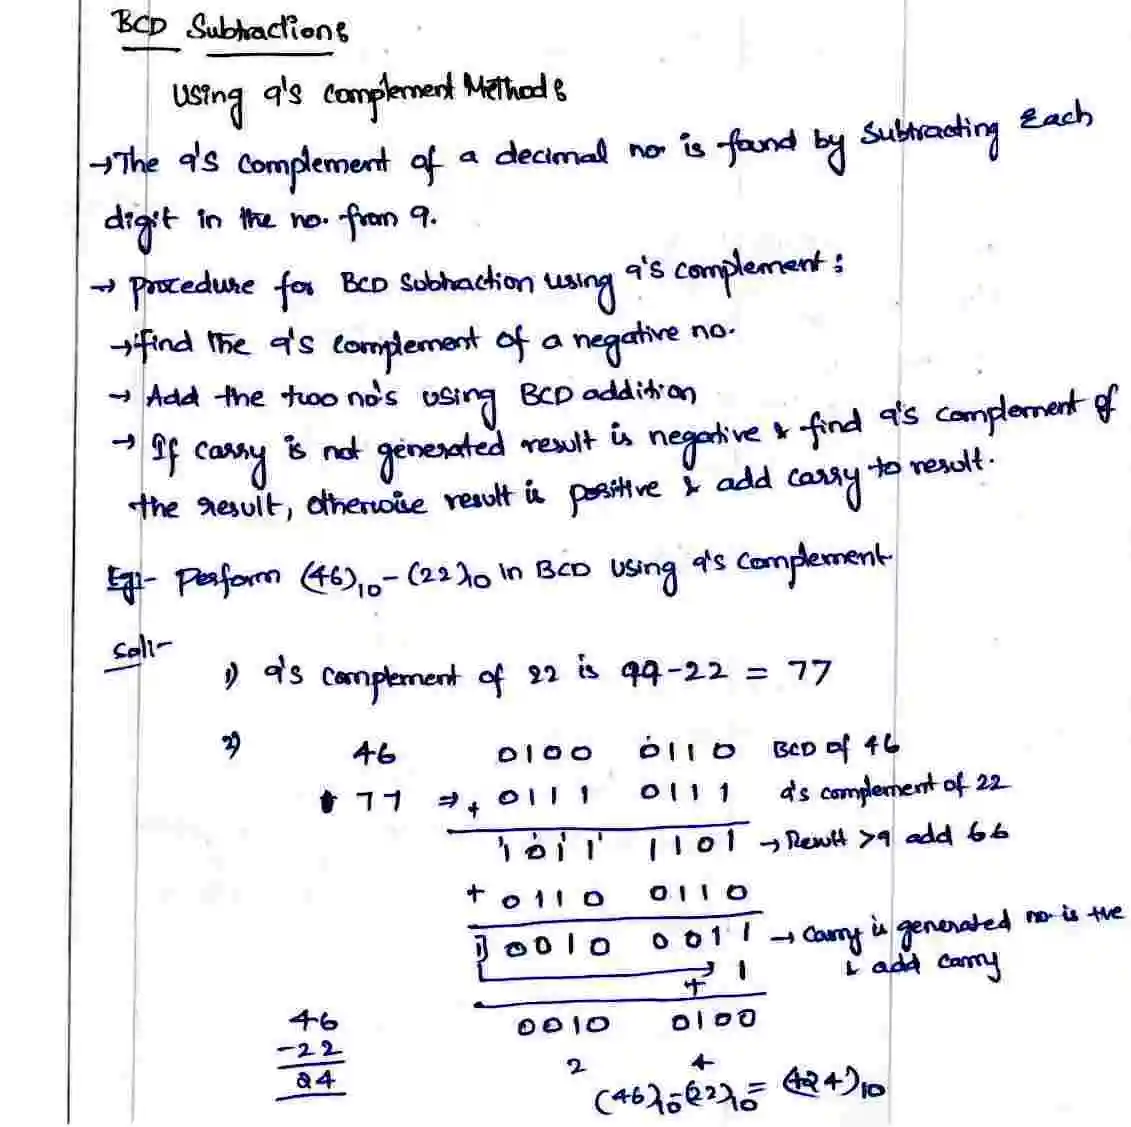 BCD Subtractions
Using 9's complement Methods
→The 9's complement of a decimal no. is found by subtracting Each
digit in the no. from 9.
→ procedure for BCD subtraction using 9's complement:
→find the 9's complement of a negative no.
→ Add the two no's using BCD addition
→ If carry is not generated result is negative & find 9's complement of
the result, otherwise result is positive & add carry to result.
Eg:- Perform (46)10-(22)10 in BCD using 9's complement
Sol:-
1) 9's complement of 22 is 99-22 = 77
2) 46 0100 0110 BCD of 46
77 ⇒ + 0111 0111 9's complement of 22
1011 1101 → Result >9 add 66
+ 0110 0110
1) 0010 0011 → Carry is generated no. is +ve
+ 1 & add carry
46 0010 0100
-22 2 4
24 (46)10-(22)10 = (+24)10